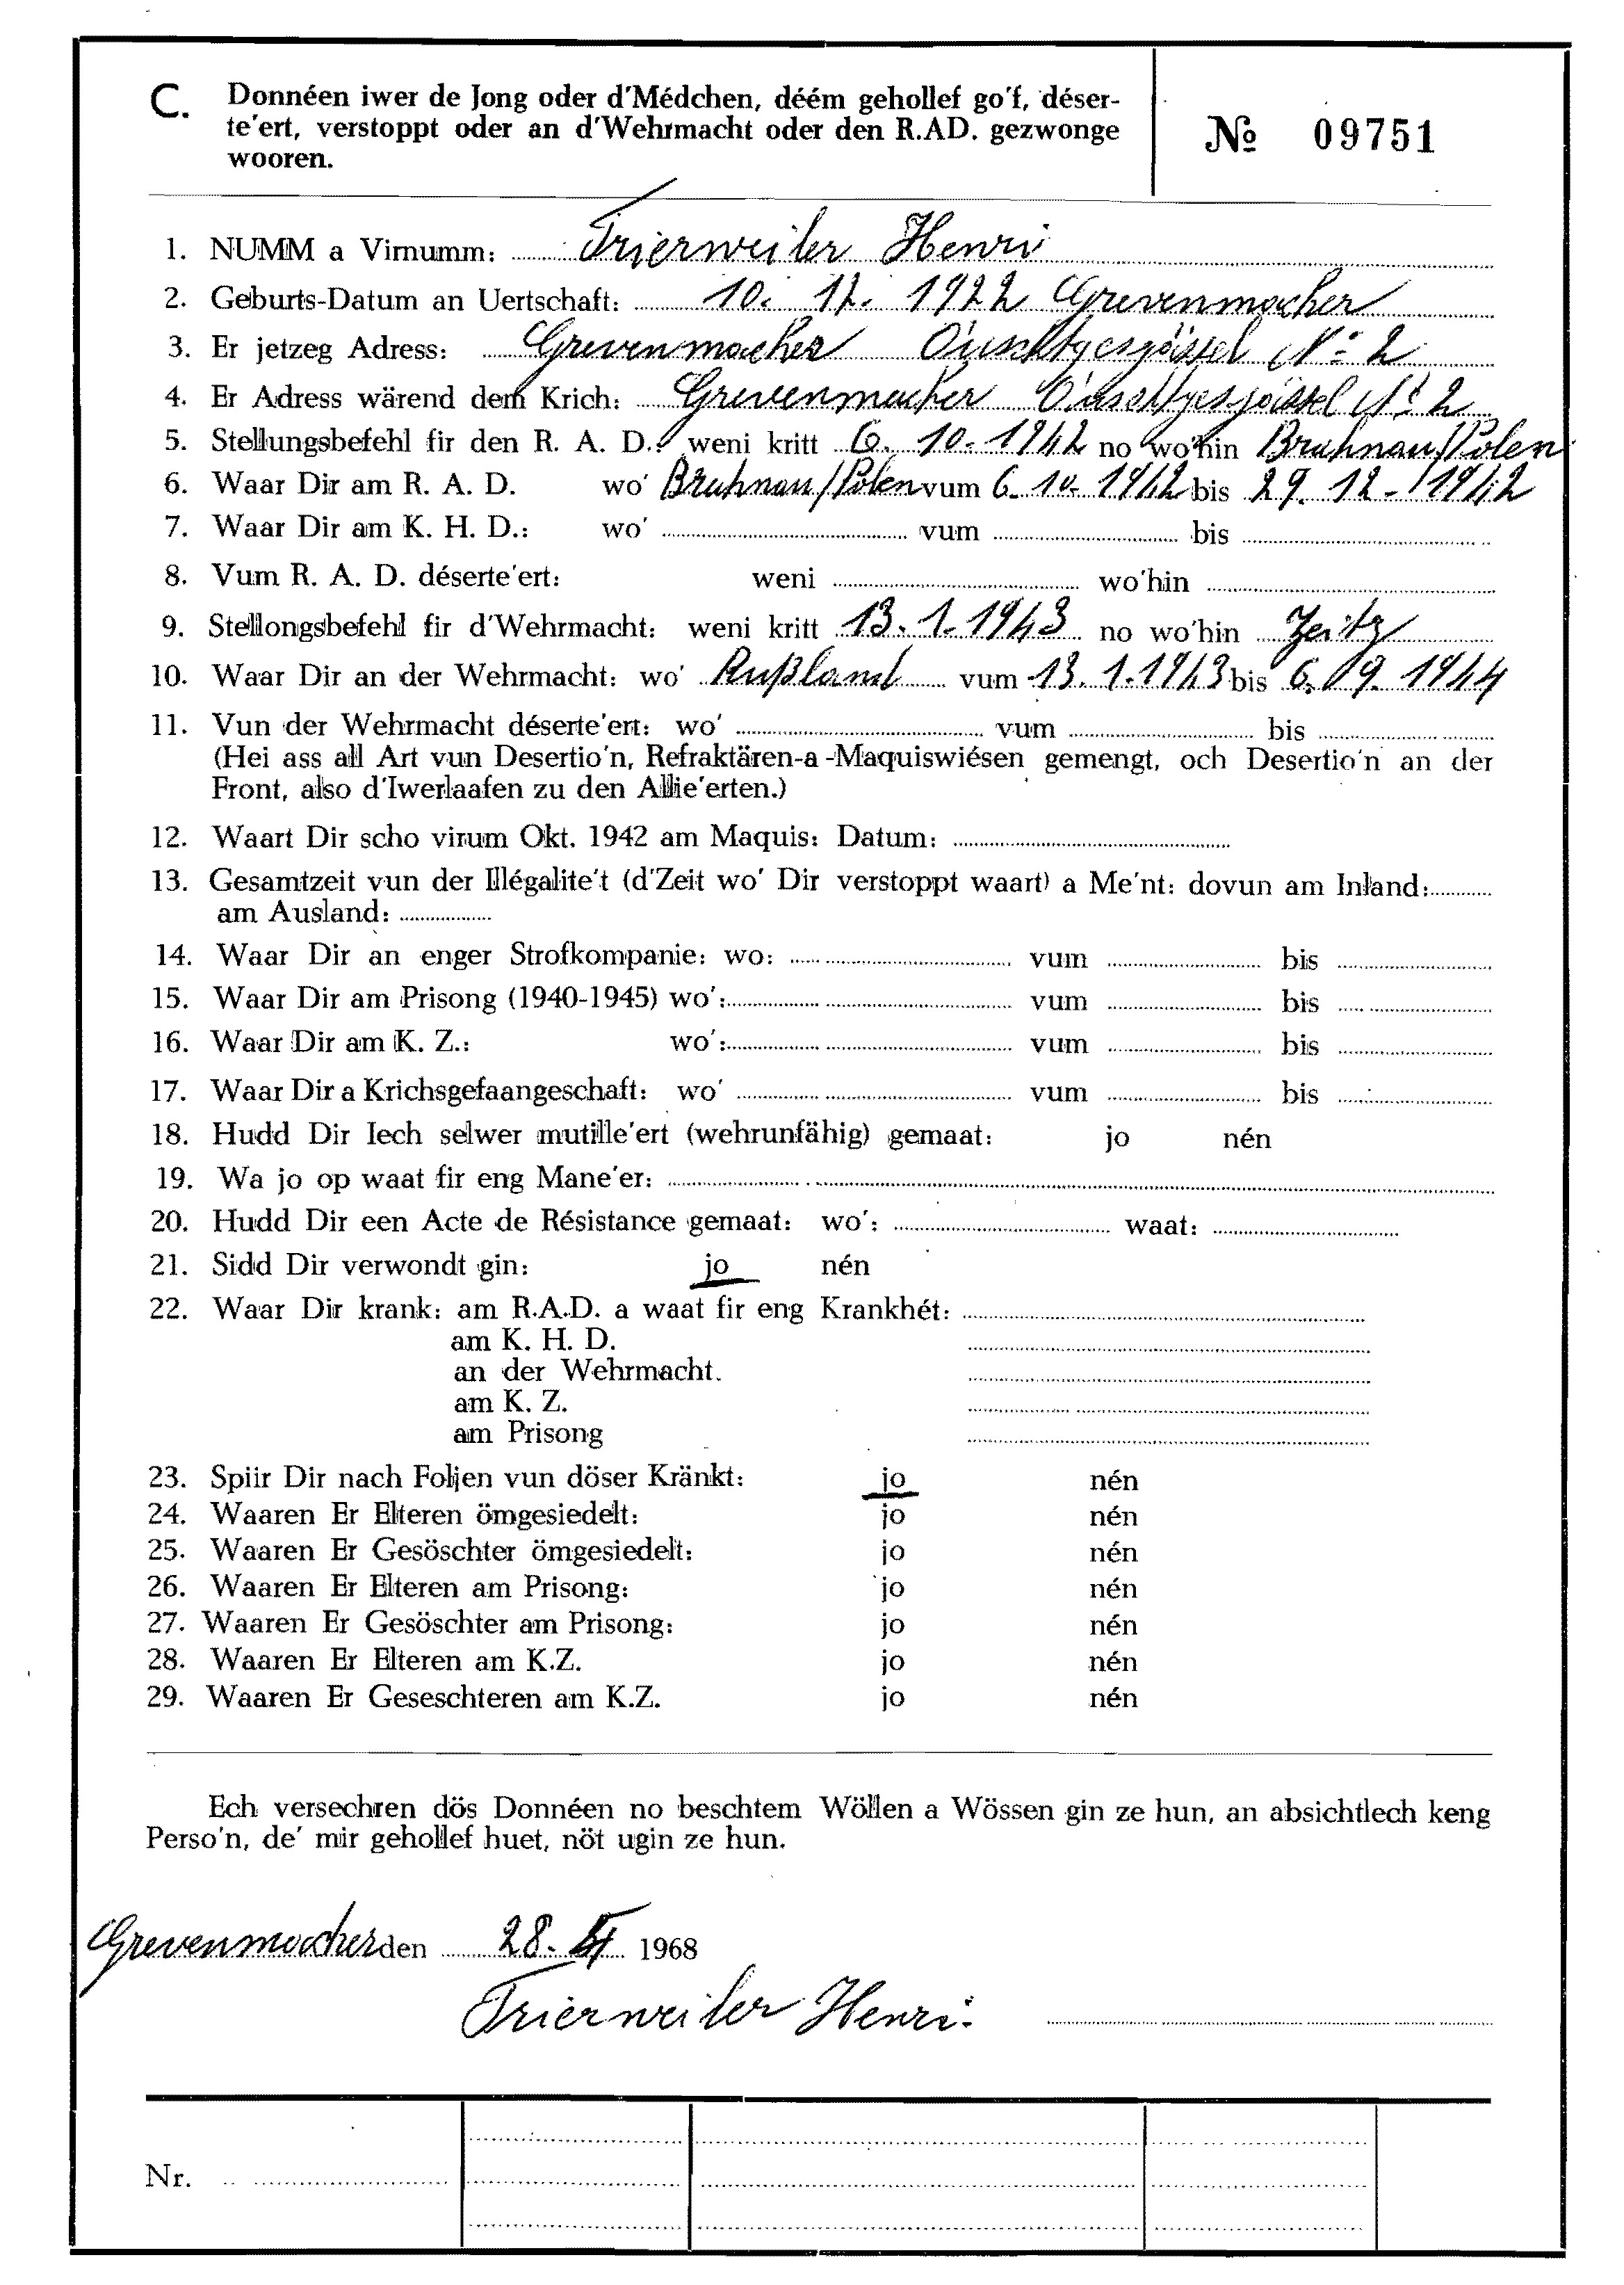 C. Donnéen iwer de Jong oder d'Médchen, déém gehollef go'f, déser-
te'ert, verstoppt oder an d'Wehrmacht oder den R.AD. gezwonge
wooren.
№ 09751
1. NUMM a Virnumm: Trierweiler Henri
2. Geburts-Datum an Uertschaft: 10. 12. 1922 Grevenmacher
3. Er jetzeg Adress: Grevenmacher N° 2
4. Er Adress wärend dem Krich: Grevenmacher N° 2
5. Stellungsbefehl fir den R. A. D.: weni kritt 6. 10. 1942 no wo'hin Bruhnau/Polen
6. Waar Dir am R. A. D. wo' Bruhnau/Polen vum 6. 10. 1942 bis 29. 12. 1942
7. Waar Dir am K. H. D.: wo' vum bis
8. Vum R. A. D. déserte'ert: weni wo'hin
9. Stellongsbefehl fir d'Wehrmacht: weni kritt 13. 1. 1943 no wo'hin Zeitz
10. Waar Dir an der Wehrmacht: wo' Rußland vum 13. 1. 1943 bis 6. 09. 1944
11. Vun der Wehrmacht déserte'ert: wo' vum bis
(Hei ass all Art vun Desertio'n, Refraktären-a-Maquiswiésen gemengt, och Desertio'n an der
Front, also d'Iwerlaafen zu den Allie'erten.)
12. Waart Dir scho virum Okt. 1942 am Maquis: Datum:
13. Gesamtzeit vun der Illégalite't (d'Zeit wo' Dir verstoppt waart) a Me'nt: dovun am Inland:
am Ausland:
14. Waar Dir an enger Strofkompanie: wo: vum bis
15. Waar Dir am Prisong (1940-1945) wo': vum bis
16. Waar Dir am K. Z.: wo': vum bis
17. Waar Dir a Krichsgefaangeschaft: wo' vum bis
18. Hudd Dir Iech selwer mutille'ert (wehrunfähig) gemaat: jo nén
19. Wa jo op waat fir eng Mane'er:
20. Hudd Dir een Acte de Résistance gemaat: wo': waat:
21. Sidd Dir verwondt gin: jo nén
22. Waar Dir krank: am R.A.D. a waat fir eng Krankhét:
am K. H. D.
an der Wehrmacht.
am K. Z.
am Prisong
23. Spiir Dir nach Foljen vun döser Kränkt: jo nén
24. Waaren Er Elteren ömgesiedelt: jo nén
25. Waaren Er Gesöschter ömgesiedelt: jo nén
26. Waaren Er Elteren am Prisong: jo nén
27. Waaren Er Gesöschter am Prisong: jo nén
28. Waaren Er Elteren am K.Z. jo nén
29. Waaren Er Geseschteren am K.Z. jo nén
Ech versechren dös Donnéen no beschtem Wöllen a Wössen gin ze hun, an absichtlech keng
Perso'n, de' mir gehollef huet, nöt ugin ze hun.
Grevenmacher den 28. 1968
Trierweiler Henri.
Nr.